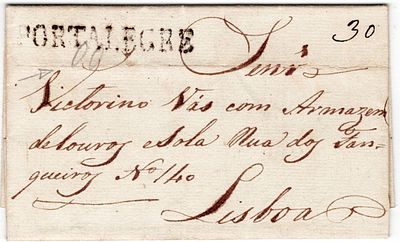 PORTALEGRE
30
Senr
Victorino Vás com Armazem
de Couros e Sola Rua dos Fan-
queiros No 140
Lisboa